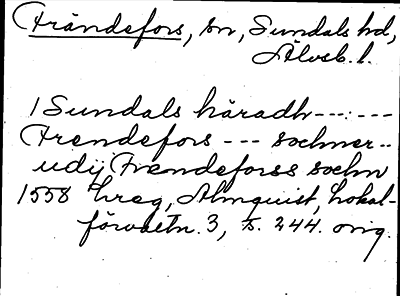 Frändefors, sn, Sundals hd,
Älvsb. l.
I Sundals häradh---:---
Frendefors --- sochner..
udij Frendeforss sochn
1558 hreg, Almquist, Lokal-
förvaltn. 3, s. 244. orig.